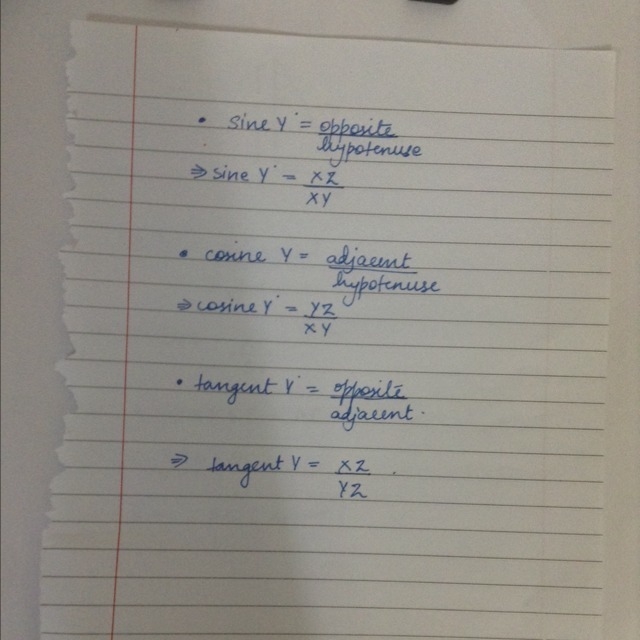 • sine Y = opposite
hypotenuse
⇒ sine Y = XZ
XY
• cosine Y = adjacent
hypotenuse
⇒ cosine Y = YZ
XY
• tangent Y = opposite
adjacent.
⇒ tangent Y = XZ .
YZ